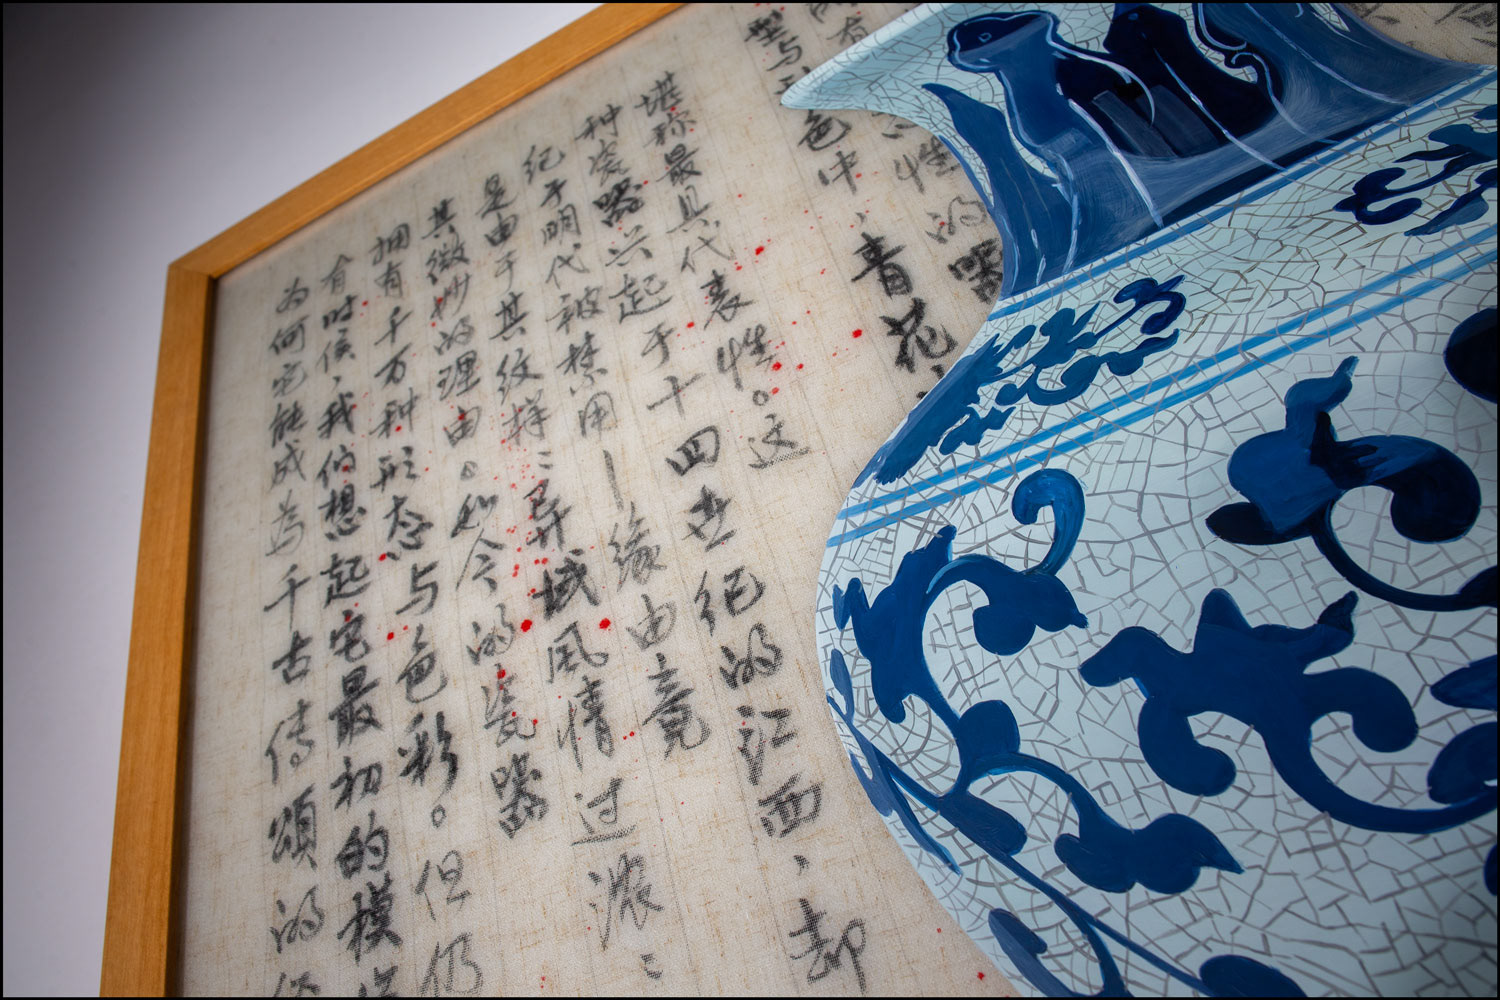 有性的器
型与色中、青花、
堪称最具代表性。这
种瓷器兴起于十四世纪的江西、却
纪于明代被禁用—缘由竟
是由于其纹样:异域风情过浓:
其微妙的理由。如今的瓷器
拥有千万种形态与色彩。但仍
有时候、我们想起它最初的模
为何它能成为千古传颂的